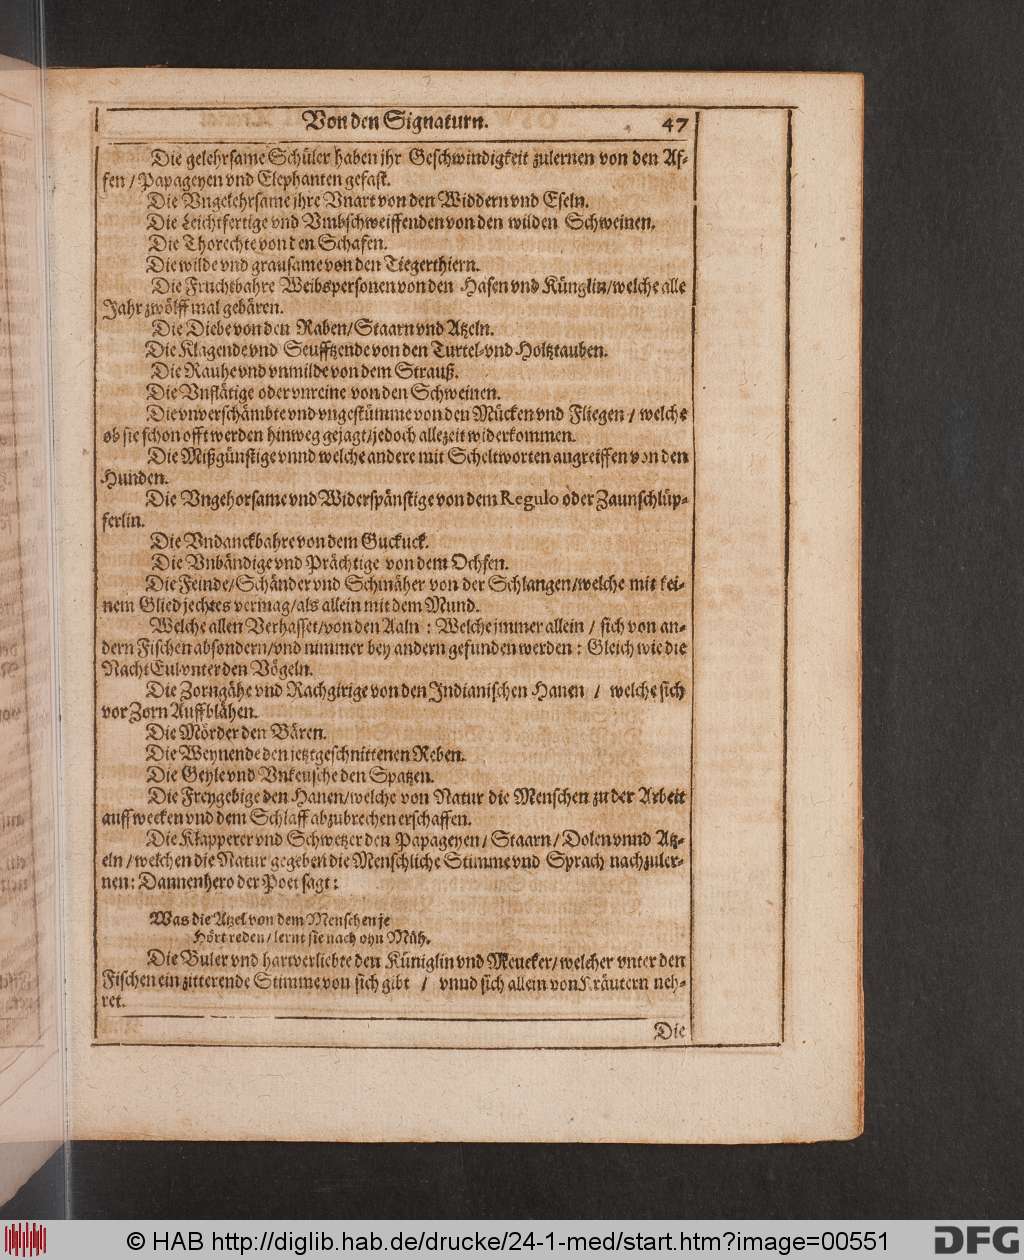 Von den Signaturn. 47
Die gelehrsame Schüler haben jhr Geschwindigkeit zulernen von den Af-
fen / Papageyen vnd Elephanten gefast.
Die Vngelehrsame jhre Vnart von den Widdern vnd Eseln.
Die Leichtfertige vnd Vmbschweiffenden von den wilden Schweinen.
Die Thorechte von den Schafen.
Die wilde vnd grausame von den Tiegerthiern.
Die Fruchtbahre Weibspersonen von den Hasen vnd Künglin/welche alle
Jahr zwölff mal gebären.
Die Diebe von den Raben/Staarn vnd Atzeln.
Die Klagende vnd Seufftzende von den Turtel-vnd Holtztauben.
Die Rauhe vnd vnmilde von dem Strauß.
Die Vnflätige oder vnreine von den Schweinen.
Die vnverschämbte vnd vngestümme von den Mücken vnd Fliegen / welche
ob sie schon offt werden hinweg gejagt/jedoch allezeit widerkommen.
Die Mißgünstige vnnd welche andere mit Scheltworten angreiffen von den
Hunden.
Die Vngehorsame vnd Widerspänstige von dem Regulo oder Zaunschlüp-
ferlin.
Die Vndanckbahre von dem Guckuck.
Die Vnbändige vnd Prächtige von dem Ochsen.
Die Feinde/Schänder vnd Schmäher von der Schlangen/welche mit kei-
nem Glied jechtes vermag/als allein mit dem Mund.
Welche allen Verhasset/von den Aaln : Welche jmmer allein / sich von an-
dern Fischen absondern/vnd nimmer bey andern gefunden werden : Gleich wie die
Nacht Eul vnter den Vögeln.
Die Zorngähe vnd Rachgirige von den Indianischen Hanen / welche sich
vor Zorn Auffblähen.
Die Mörder den Bären.
Die Weynende den jetztgeschnittenen Reben.
Die Geyle vnd Vnkeusche den Spatzen.
Die Freygebige den Hanen/welche von Natur die Menschen zu der Arbeit
auffwecken vnd dem Schlaff abzubrechen erschaffen.
Die Klapperer vnd Schwetzer den Papageyen / Staarn / Dolen vnnd Atz-
eln / welchen die Natur gegeben die Menschliche Stimme vnd Sprach nachzuler-
nen: Dannenhero der Poet sagt:
Was die Atzel von dem Menschen je
Hört reden/lernt sie nach ohn Müh.
Die Buler vnd hartverliebte den Küniglin vnd Meucker/welcher vnter den
Fischen ein zitterende Stimme von sich gibt / vnnd sich allein von Kräutern neh-
ret.
Die
© HAB http://diglib.hab.de/drucke/24-1-med/start.htm?image=00551
DFG